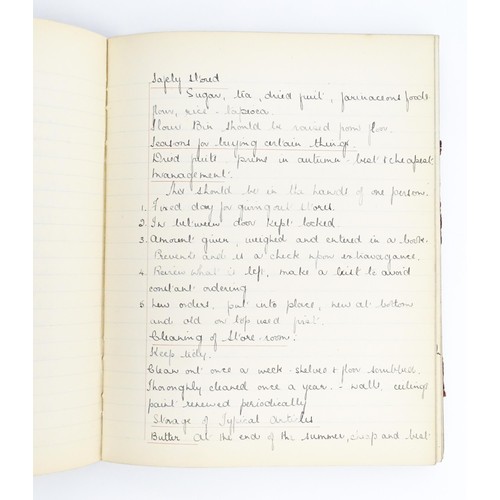 Safely Stored
Sugar, tea, dried fruit, farinaceous foods
flour, rice - tapioca.
Flour Bin should be raised from floor.
Seasons for buying certain things.
Dried fruits prunes in autumn - best & cheapest
Management.
This should be in the hands of one person.
1. Fixed day for giving out stores.
2. In between door kept locked
3. Amount given, weighed and entered in a book.
Prevents and is a check upon extravagance.
4. Review what is left, make a list to avoid
constant ordering
5. New orders, put into place, new at bottom
and old on top used first.
Cleaning of Store-room.
Keep tidy.
Clean out once a week - shelves & floor scrubbed.
Thoroughly cleaned once a year. - walls, ceilings
paint renewed periodically
Storage of Typical Articles
Butter At the end of the summer, cheap and best